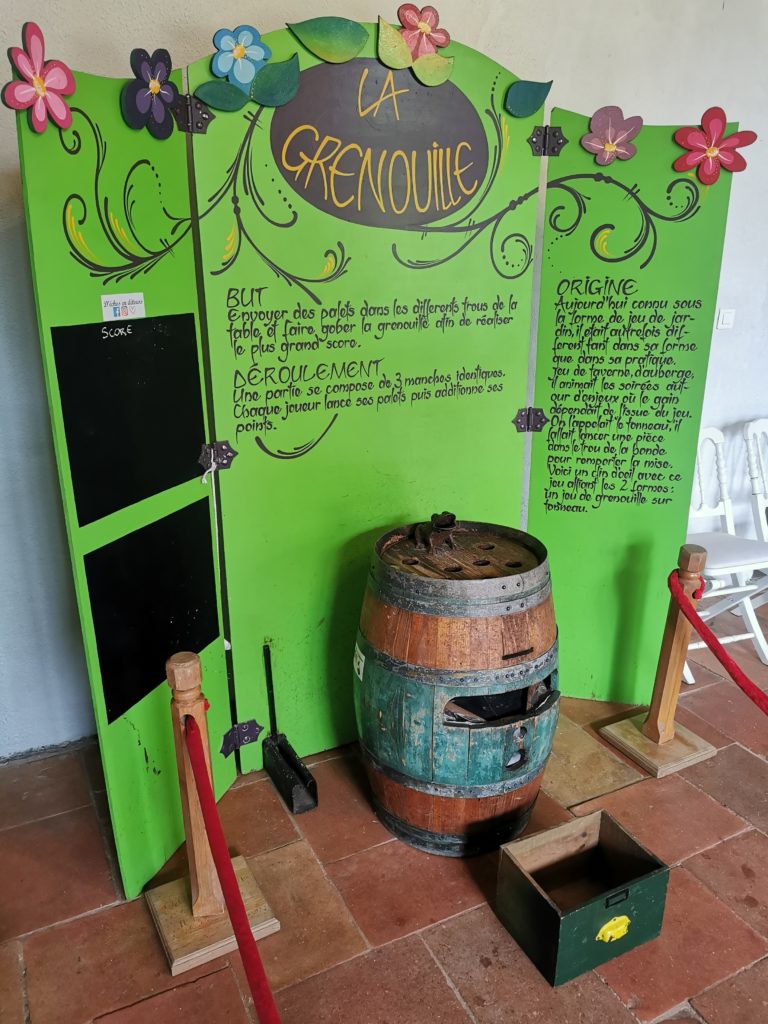 LA
GRENOUILLE
SCORE
BUT
Envoyer des palets dans les differents trous de la
table et faire gober la grenouille afin de réaliser
le plus grand score.
DÉROULEMENT
Une partie se compose de 3 manches identiques.
Chaque joueur lance ses palets puis additionne ses
points.
ORIGINE
Aujourd'hui connu sous
la forme de jeu de jar-
din, il était autrefois dif-
ferent tant dans sa forme
que dans sa pratique.
Jeu de taverne, d'auberge,
il animait les soirées aut-
our d'enjeux où le gain
dépendait de l'issue du jeu.
On l'appelait "le tonneau", il
fallait lancer une pièce
dans le trou de la bonde
pour remporter la mise.
Voici un clin d'oeil avec ce
jeu alliant les 2 formes :
un jeu de grenouille sur
tonneau.